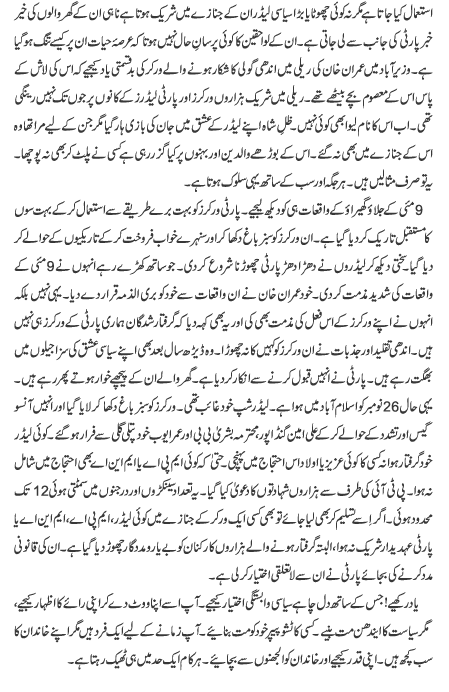 استعمال کیا جاتا ہے مگر نہ کوئی چھوٹا یا بڑا سیاسی لیڈر ان کے جنازے میں شریک ہوتا ہے نا ہی ان کے گھر والوں کی خیر
خبر پارٹی کی جانب سے لی جاتی ہے۔ ان کے لواحقین کا کوئی پرسانِ حال نہیں ہوتا کہ عرصۂ حیات ان پر کیسے تنگ ہو گیا
ہے۔ وزیر آباد میں عمران خان کی ریلی میں اندھی گولی کا شکار ہونے والے ورکر کی بدقسمتی یاد کیجیے کہ اس کی لاش کے
پاس اس کے معصوم بچے بیٹھے تھے۔ ریلی میں شریک ہزاروں ورکرز اور پارٹی لیڈرز کے کانوں پر جوں تک نہیں رینگی
تھی۔ اب اس کا نام لیوا بھی کوئی نہیں۔ ظلِ شاہ اپنے لیڈر کے عشق میں جان کی بازی ہار گیا مگر جن کے لیے مرا تھا وہ
اس کے جنازے میں بھی نہ گئے۔ اس کے بوڑھے والدین اور بہنوں پر کیا گزر رہی ہے کسی نے پلٹ کر بھی نہ پوچھا۔
یہ تو صرف مثالیں ہیں۔ ہر جگہ اور سب کے ساتھ یہی سلوک ہوتا ہے۔
9 مئی کے جلاؤ گھیراؤ کے واقعات ہی کو دیکھ لیجیے۔ پارٹی ورکرز کو بہت برے طریقے سے استعمال کر کے بہت سوں
کا مستقبل تاریک کر دیا گیا ہے۔ ان ورکرز کو سبز باغ دکھا کر اور سنہرے خواب فروخت کر کے تاریکیوں کے حوالے کر
دیا گیا۔ سختی دیکھ کر لیڈروں نے دھڑا دھڑ پارٹی چھوڑنا شروع کر دی۔ جو ساتھ کھڑے رہے انہوں نے 9 مئی کے
واقعات کی شدید مذمت کر دی۔ خود عمران خان نے ان واقعات سے خود کو بری الذمہ قرار دے دیا۔ یہی نہیں بلکہ
انہوں نے اپنے ورکرز کے اس فعل کی مذمت بھی کی اور یہ بھی کہہ دیا کہ گرفتار شدگان ہماری پارٹی کے ورکرز ہی نہیں
ہیں۔ اندھی تقلید اور جذبات نے ان ورکرز کو کہیں کا نہ چھوڑا۔ وہ ڈیڑھ سال بعد بھی اپنے سیاسی عشق کی سزا جیلوں میں
بھگت رہے ہیں۔ پارٹی نے انہیں قبول کرنے سے انکار کر دیا ہے۔ گھر والے ان کے پیچھے خوار ہوتے پھر رہے ہیں۔
یہی حال 26 نومبر کو اسلام آباد میں ہوا ہے۔ لیڈر شپ خود غائب تھی۔ ورکرز کو سبز باغ دکھا کر لایا گیا اور انہیں آنسو
گیس اور تشدد کے حوالے کر کے علی امین گنڈا پور، محترمہ بشریٰ بی بی اور عمر ایوب خود پتلی گلی سے فرار ہو گئے۔ کوئی لیڈر
خود گرفتار ہوا نہ کسی کا کوئی عزیز یا اولاد اس احتجاج میں پہنچی۔ حتیٰ کہ کوئی ایم پی اے یا ایم این اے بھی احتجاج میں شامل
نہ ہوا۔ پی ٹی آئی کی طرف سے ہزاروں شہادتوں کا دعویٰ کیا گیا۔ یہ تعداد سینکڑوں اور درجنوں میں سمٹتی ہوئی 12 تک
محدود ہوئی۔ اگر اسے تسلیم کر بھی لیا جائے تو بھی کسی ایک ورکر کے جنازے میں کوئی لیڈر، ایم پی اے، ایم این اے یا
پارٹی عہدیدار شریک نہ ہوا، البتہ گرفتار ہونے والے ہزاروں کارکنان کو بے یار و مددگار چھوڑ دیا گیا ہے۔ ان کی قانونی
مدد کرنے کی بجائے پارٹی نے ان سے لاتعلقی اختیار کر لی ہے۔
یاد رکھیے! جس کے ساتھ دل چاہے سیاسی وابستگی اختیار کیجیے۔ آپ اسے اپنا ووٹ دے کر اپنی رائے کا اظہار کیجیے،
مگر سیاست کا ایندھن مت بنیے۔ کسی کا ٹشو پیپر خود کو مت بنائیے۔ آپ زمانے کے لیے ایک فرد ہیں مگر اپنے خاندان کا
سب کچھ ہیں۔ اپنی قدر کیجیے اور خاندان کو الجھنوں سے بچائیے۔ ہر کام ایک حد میں ہی ٹھیک رہتا ہے۔